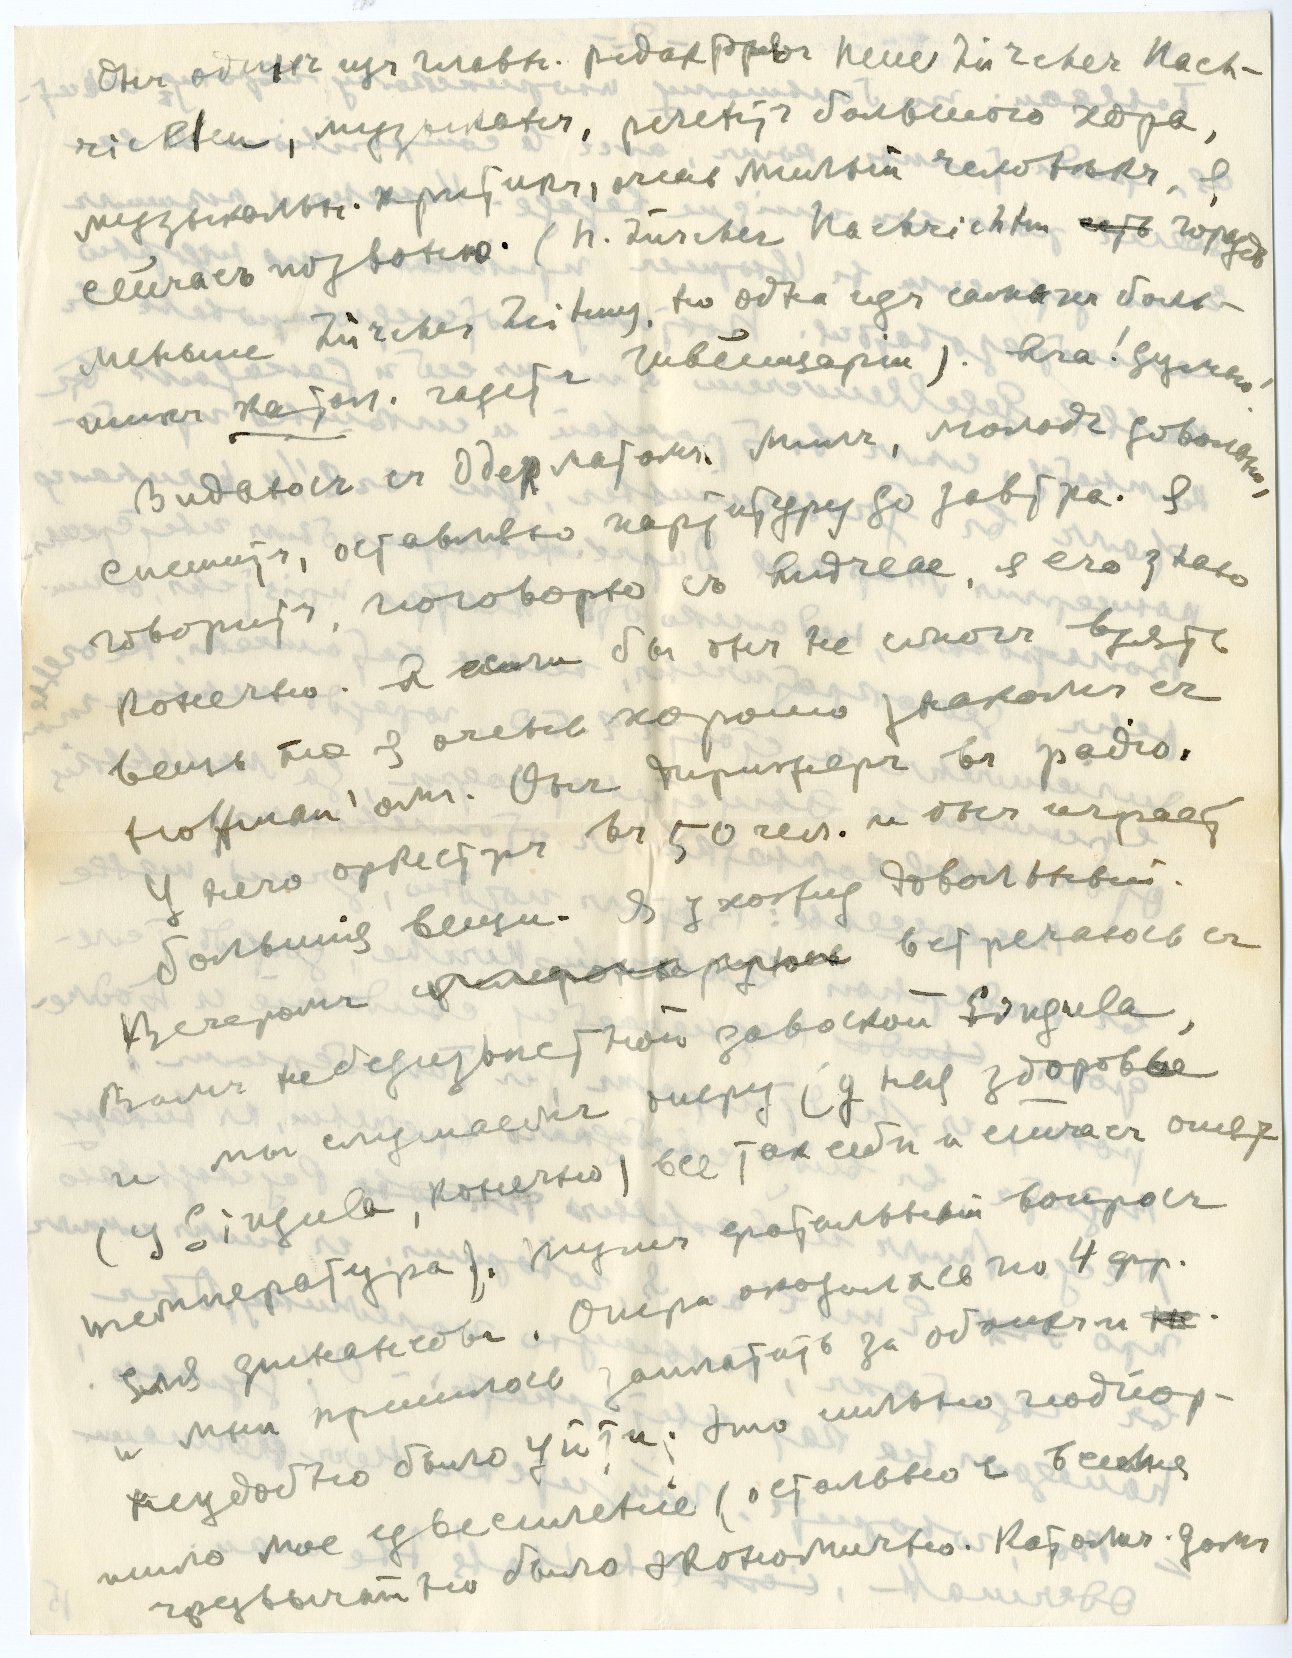 Онъ одинъ изъ главн. редакторовъ Neue Zürcher Nach-
richten, музыкантъ, регентъ большого хора,
музыкальн. критикъ, очень милый человѣкъ, я
сейчасъ позвоню. (N. Zürcher Nachrichten гораздо
меньше Zürcher Zeitung, но одна изъ самыхъ боль-
шихъ катол. газетъ Швейцаріи). Ага! думаю!
Видаюсь съ Одерматомъ. Милъ, молодъ довольно,
спешитъ, оставляю партитуру до завтра. Я
говоритъ, поговорю съ Andreae, я его знаю
конечно. А если бы онъ не смогъ взять
вещь то я очень хорошо знакомъ съ
Hoffman'омъ. Онъ дирижеръ въ радіо.
У него оркестръ въ 50 чел. и онъ играетъ
большія вещи. Я ухожу довольный.
Вечеромъ встречаюсь съ
Вамъ небезызвѣстной завоской Singula,
и мы слушаемъ оперу (у нея здоровье
(у Singula, конечно) все так себѣ и сейчасъ опять
температура). фатальный вопросъ
для финансовъ. Опера оказалась по 4 фр.
и мнѣ пришлось заплатить за обоихъ и
неудобно было уйти. Это сильно подкор-
мило мое увеселеніе (остальное время
чрезвычайно было экономично. Католич. домъ